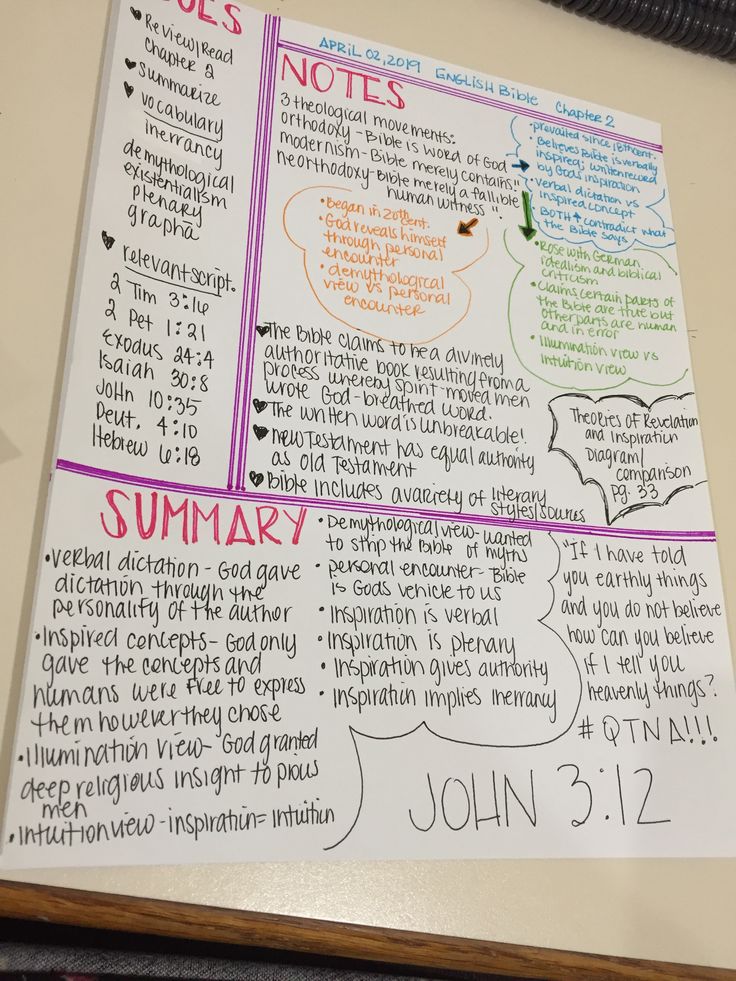 APRIL 02, 2019 ENGLISH BIBLE Chapter 2
♥ Review/Read
Chapter 2
♥ Summarize
♥ vocabulary
inerrancy
demythological
existentialism
plenary
grapha
♥ relevant script.
2 Tim 3:16
2 Pet 1:21
Exodus 24:4
Isaiah 30:8
John 10:35
Deut. 4:10
Hebrew 6:18
NOTES
3 theological movements:
orthodoxy - Bible is word of God
modernism - Bible merely contains "
neorthodoxy - Bible merely a fallible
human witness ".
• prevailed since 18th cent.
• Believes Bible is verbally
inspired; written record
by Gods inspiration
• verbal dictation vs
inspired concept
• BOTH ↑ contradict what
the Bible says
• Began in 20th cent.
• God reveals himself
through personal
encounter
• demythological
view vs personal
encounter
• Rose with German
idealism and biblical
criticism
• Claims certain parts of
the Bible are true but
other parts are human
and in error
• Illumination view vs
Intuition view
♥ The Bible claims to be a divinely
authoritative book resulting from a
process whereby spirit-moved men
wrote God-breathed word.
♥ The written word is unbreakable!
♥ New Testament has equal authority
as Old Testament
♥ Bible includes a variety of literary
styles/sources
Theories of Revelation
and Inspiration
Diagram/
comparison
Pg. 33
SUMMARY
• verbal dictation - God gave
dictation through the
personality of the author
• Inspired concepts - God only
gave the concepts and
humans were free to express
them however they chose
• Illumination view - God granted
deep religious insight to pious
men
• intuition view - inspiration = intuition
• Demythological view - wanted
to strip the Bible of myths
• personal encounter - Bible
is Gods vehicle to us
• Inspiration is verbal
• Inspiration is plenary
• Inspiration gives authority
• Inspiration implies inerrancy
"If I have told
you earthly things
and you do not believe
how can you believe
if I tell you
heavenly things?
# QTNA!!!
JOHN 3:12